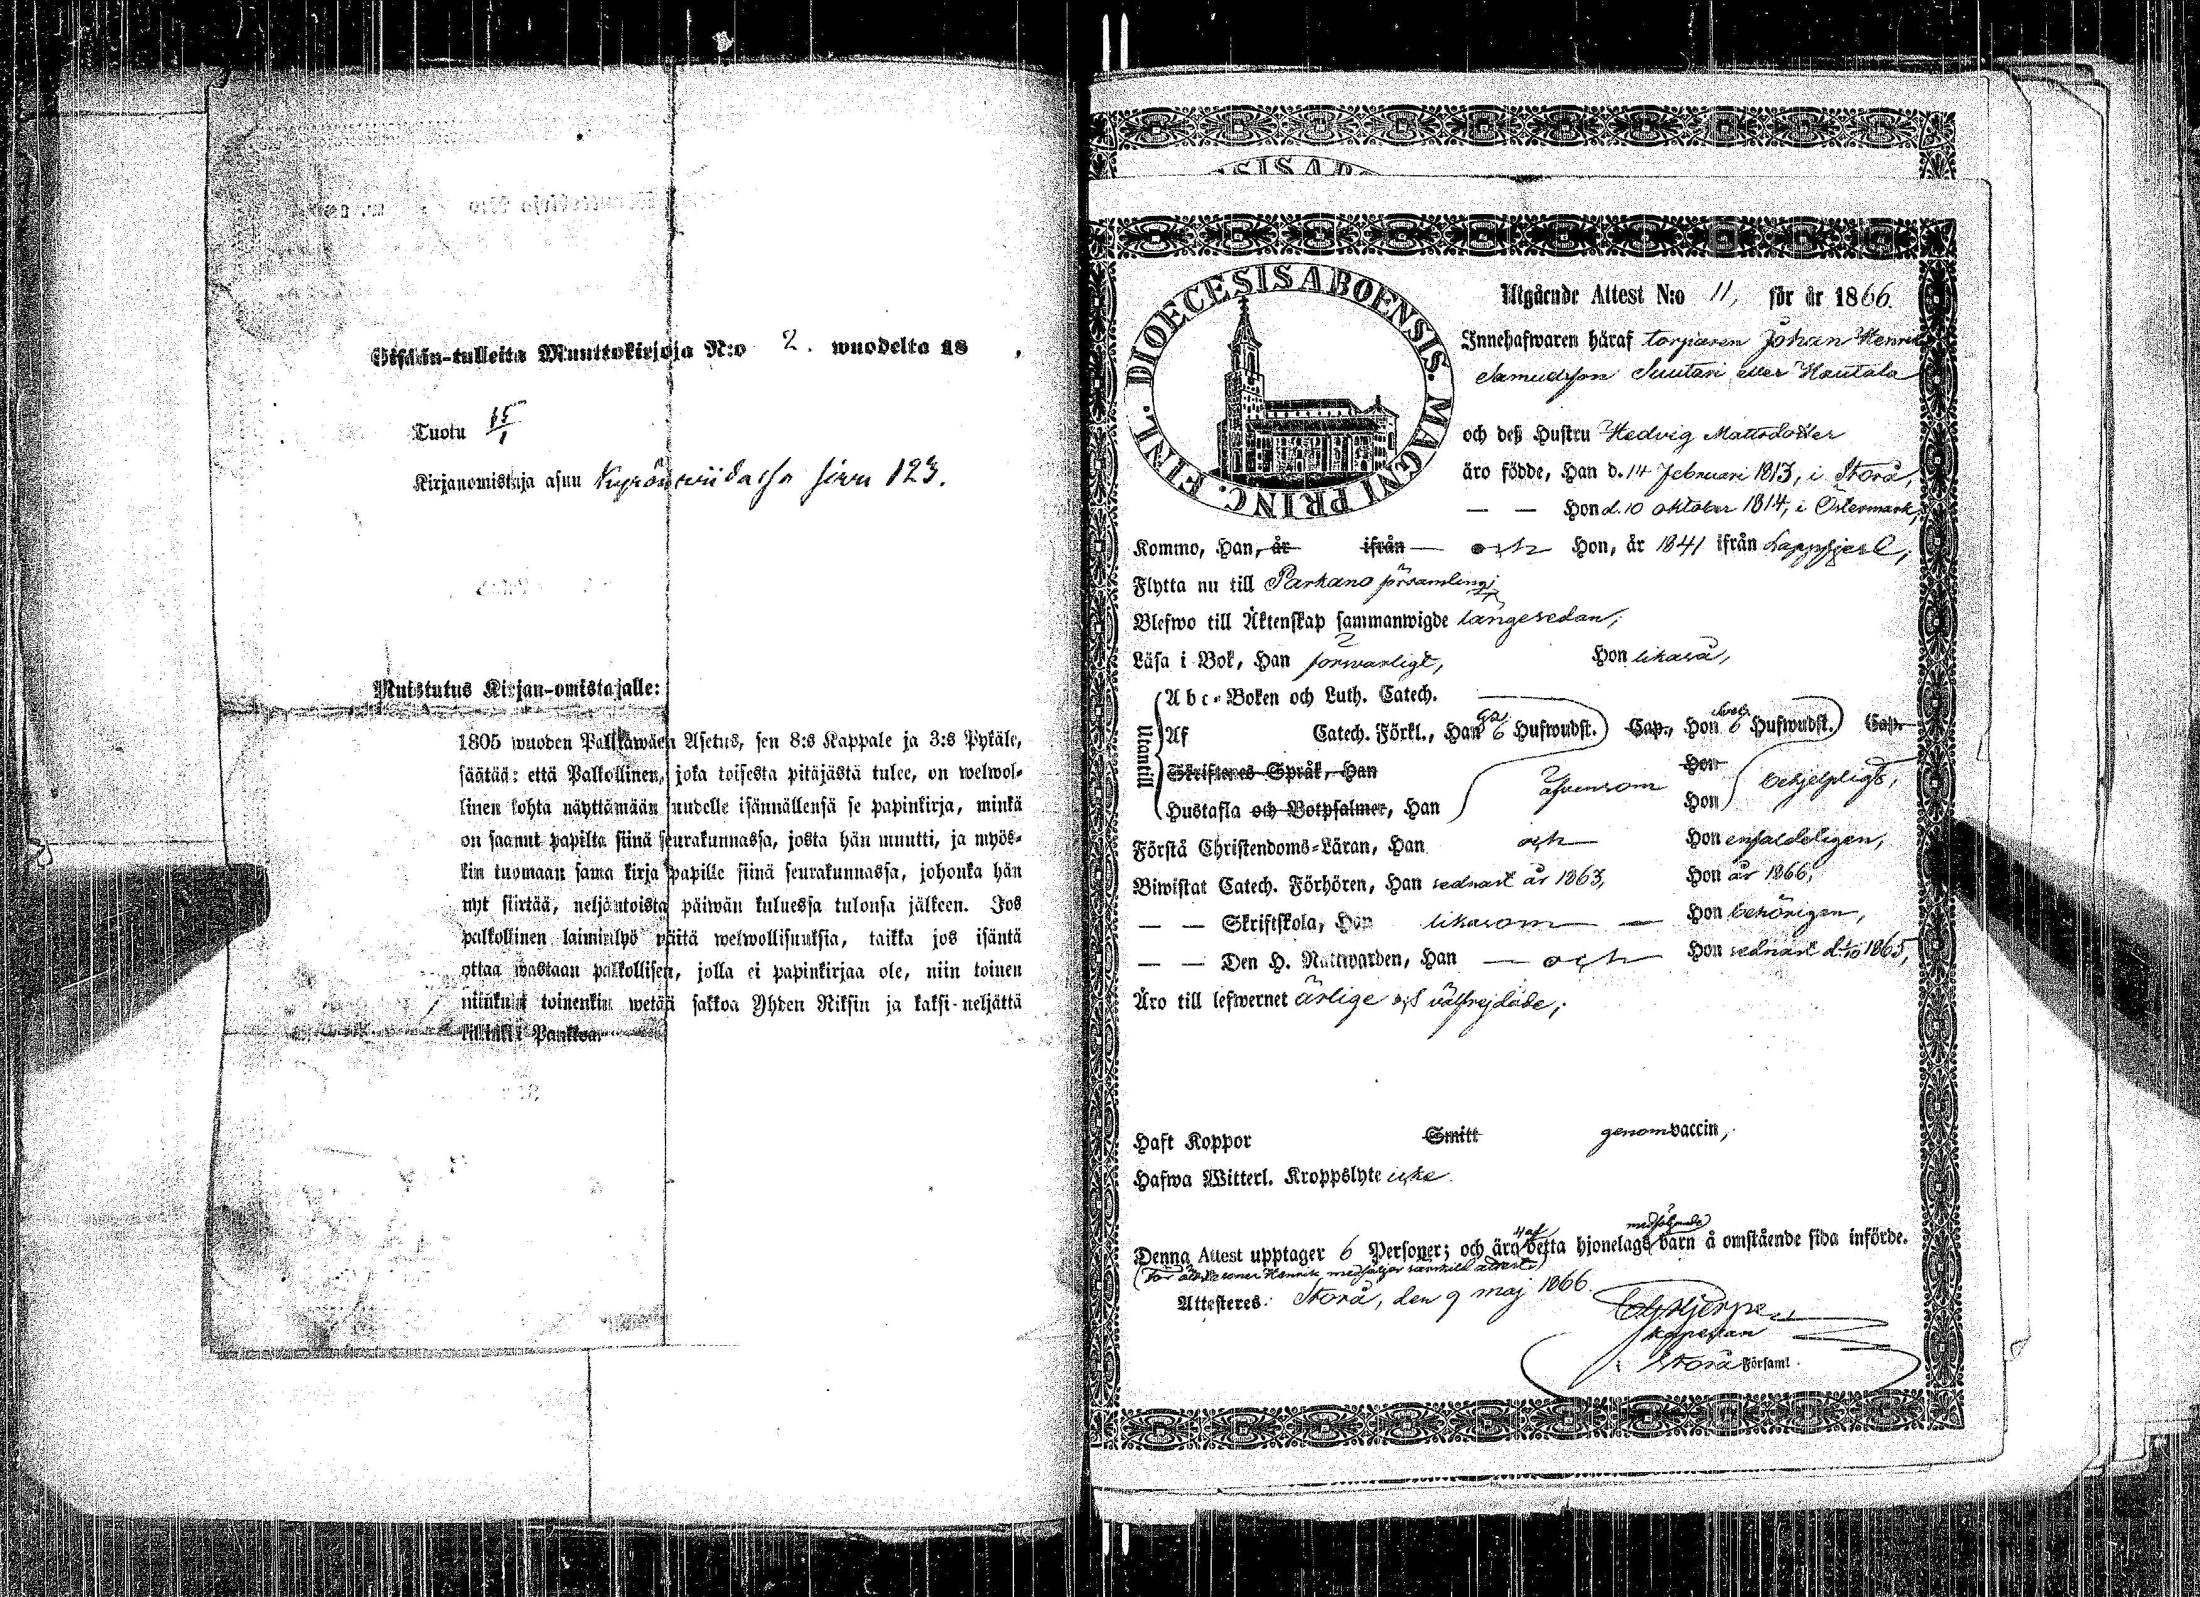 Sisään-tulleita Muuttokirjoja N:o 2. wuodelta 18
Tuotu 15/1
Kirjanomistaja asuu Kyrön sivu 123.
Muistutus Kirjan-omistajalle:
1805 wuoden Palkkawäen Asetus, sen 8:s Kappale ja 3:s Pykäle,
säätää: että Palkollinen, joka toisesta pitäjästä tulee, on welwol-
linen kohta näyttämään uudelle isännällensä se papinkirja, minkä
on saanut papilta siinä seurakunnassa, josta hän muutti, ja myös-
kin tuomaan sama kirja papille siinä seurakunnassa, johonka hän
nyt siirtää, neljäntoista päiwän kuluessa tulonsa jälkeen. Jos
palkollinen laiminlyö näitä welwollisuuksia, taikka jos isäntä
ottaa wastaan palkollisen, jolla ei papinkirjaa ole, niin toinen
niinkuin toinenkin wetää sakkoa Yhden Riksin ja kaksi-neljättä
killinkiä Pankkoa.
DIOECESIS ABOENSIS. MAGNI PRINC. FINL.
Utgående Attest N:o 11, för år 1866.
Innehafwaren häraf torparen Johan Henrik
Samuelsson Suutari eller Hautala
och deß Hustru Hedvig Mattsdotter
äro födde, Han d. 14 Februari 1813, i Storå,
— — Hon d. 10 oktober 1814, i Östermark,
Kommo, Han, år ifrån — och Hon, år 1841 ifrån Lappfjerd,
Flytta nu till Parkano församling;
Blefwo till Äktenskap sammanwigde längesedan;
Läsa i Bok, Han försvarligt, Hon likaså,
Utantill
Abc-Boken och Luth. Catech.
Af Catech. Förkl., Han 6 Hufwudst.) Cap., Hon 6 Hufwudst.) Cap.
Skriftenes Språk, Han Hon
Hustafla och Botpsalmer, Han äfvensom Hon behjelpligt,
Förstå Christendoms-Läran, Han och Hon enfaldeligen,
Biwistat Catech. Förhören, Han sednast år 1863, Hon år 1866,
— — Skriftskola, Han likasom — Hon behörigen,
— — Den H. Nattwarden, Han — och Hon sednast d. 1865,
Äro till lefwernet ärlige och välfrejdade;
Haft Koppor Smitt genom vaccin,
Hafwa Witterl. Kroppslyte icke.
Denna Attest upptager 6 Personer; och äro 4 af detta hjonelags medföljande barn å omstående sida införde.
(För Henrik medföljer särskild attest)
Attesteres. Storå, den 9 maj 1866.
Hjerpe
kapellan
i Storå Församl.